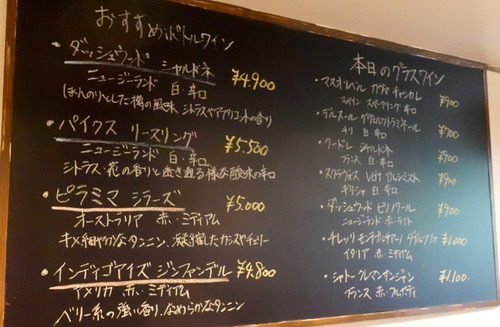 おすすめボトルワイン
・ダッシュウッド シャルドネ ¥4.900
ニュージーランド 白 辛口
ほんのりとした樽の風味 シトラスやアプリコットの香り
・パイクス リースリング ¥5.500
ニュージーランド 白・辛口
シトラス・花の香りと 酸味の辛口
・ピラミマ シラーズ ¥5.000
オーストラリア 赤・ミディアム
キメ細やかなタンニン、凝縮したカシスやチェリー
・インディゴアイズ ジンファンデル ¥4.800
アメリカ 赤・ミディアム
ベリー系の強い香り、なめらかなタンニン
本日のグラスワイン
・マスオリベル カヴァ ¥700
スペイン スパークリング 辛口
・デルスール ゲヴュルツトラミネール ¥700
チリ 白 辛口
・ シャルドネ ¥900
フランス 白 辛口
・ ¥900
ギリシャ 白 辛口
・ダッシュウッド ピノノワール ¥900
ニュージーランド 赤・ライト
・チレッリ モンテプルチアーノ ダブルッツォ ¥1.000
イタリア 赤・ミディアム
・シャトー クルマンサンジャン ¥1.100.
フランス 赤・フルボディ